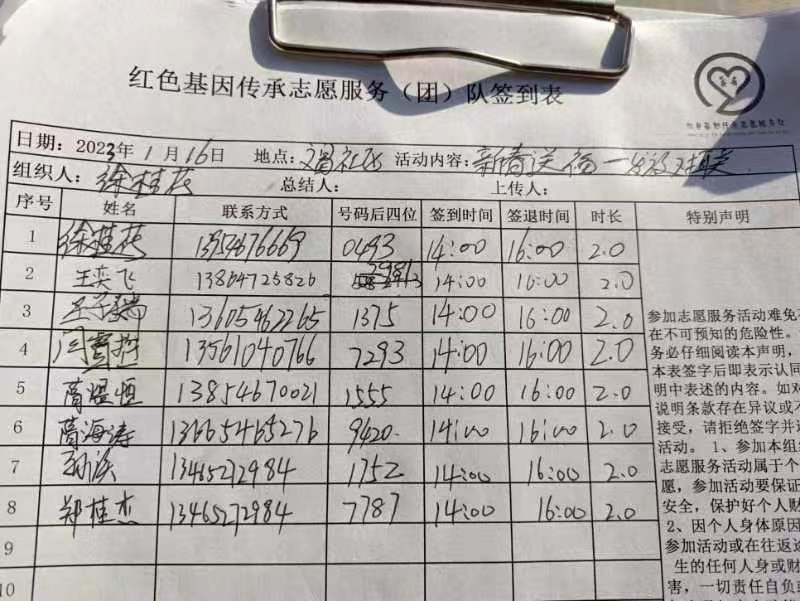 红色基因传承志愿服务（团）队签到表
日期：2023年1月16日 地点：文昌社区 活动内容：新春送福一
组织人：徐桂花 总结人： 上传人：
序号 姓名 联系方式 号码后四位 签到时间 签退时间 时长 特别声明
1 徐桂花 13954676669 0493 14:00 16:00 2.0
2 王奕飞 13864725826 2981 14:00 16:00 2.0
3 13605462265 1375 14:00 16:00 2.0
4 13561040766 7293 14:00 16:00 2.0
5 13854670021 1555 14:00 16:00 2.0
6 海涛 13665465276 9420 14:00 16:00 2.0
7 13465272984 1752 14:00 16:00 2.0
8 郑桂杰 13465272984 7787 14:00 16:00 2.0
9
10
参加志愿服务活动难免
在不可预知的危险性。
务必仔细阅读本声明，
本表签字后即表示认同
明中表述的内容。如对
说明条款存在异议或不
接受，请拒绝签字并
活动。 1、参加本组
志愿服务活动属于个
愿，参加活动要保证
安全，保护好个人财
2、因个人身体原因
参加活动或在往返途
生的任何人身或财
害，一切责任自负